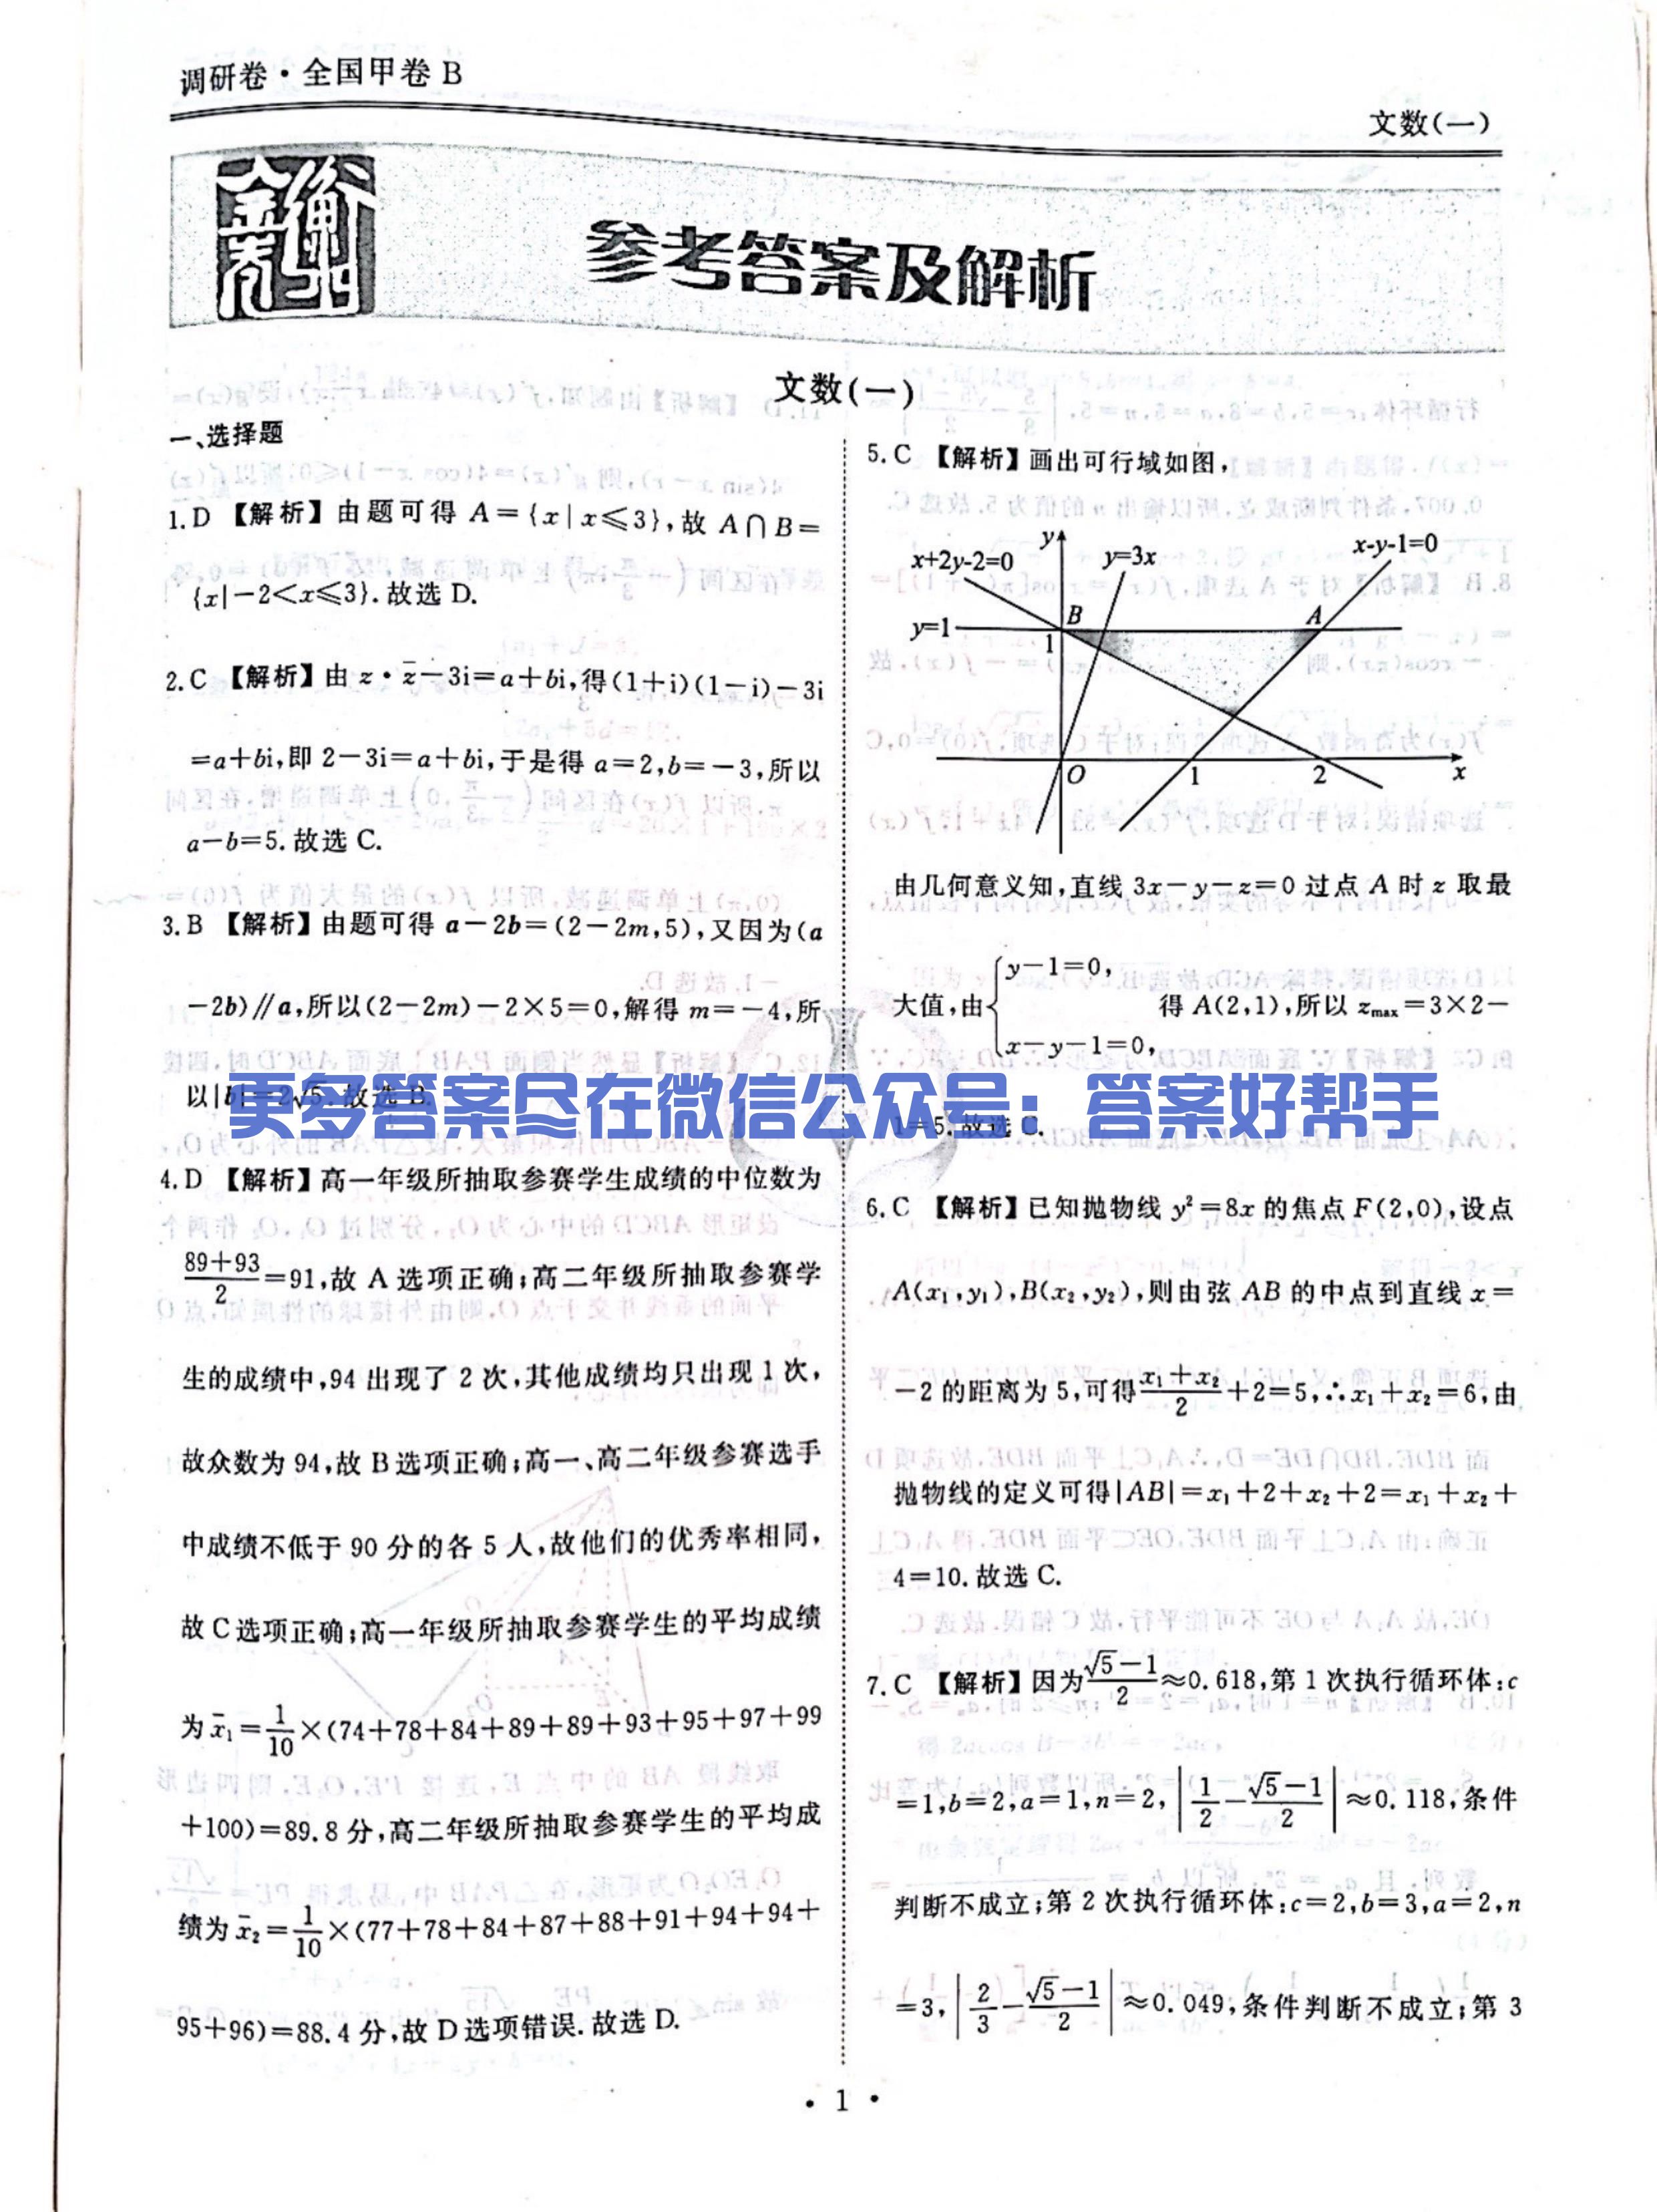 调研卷·全国甲卷 B
文数(一)
金卷 衡
参考答案及解析
文数(一)
一、选择题
1.D 【解析】由题可得 A={x|x⩽3},故 A∩B=
{x|-2<x⩽3}.故选 D.
2.C 【解析】由 z·z̄-3i=a+bi,得(1+i)(1-i)-3i
=a+bi,即 2-3i=a+bi,于是得 a=2,b=-3,所以
a-b=5.故选 C.
3.B 【解析】由题可得 a-2b=(2-2m,5),又因为(a
-2b)∥a,所以(2-2m)-2×5=0,解得 m=-4,所
以|b|=2√5.故选 B.
4.D 【解析】高一年级所抽取参赛学生成绩的中位数为
(89+93)/2=91,故 A 选项正确;高二年级所抽取参赛学
生的成绩中,94 出现了 2 次,其他成绩均只出现 1 次,
故众数为 94,故 B 选项正确;高一、高二年级参赛选手
中成绩不低于 90 分的各 5 人,故他们的优秀率相同,
故 C 选项正确;高一年级所抽取参赛学生的平均成绩
为 x̄₁=1/10×(74+78+84+89+89+93+95+97+99
+100)=89.8 分,高二年级所抽取参赛学生的平均成
绩为 x̄₂=1/10×(77+78+84+87+88+91+94+94+
95+96)=88.4 分,故 D 选项错误.故选 D.
5.C 【解析】画出可行域如图,
x+2y-2=0
y
y=3x
x-y-1=0
y=1
1
B
A
O
1
2
x
由几何意义知,直线 3x-y-z=0 过点 A 时 z 取最
大值,由{y-1=0,
x-y-1=0,
得 A(2,1),所以 zmax=3×2-
1=5.故选 C.
6.C 【解析】已知抛物线 y²=8x 的焦点 F(2,0),设点
A(x₁,y₁),B(x₂,y₂),则由弦 AB 的中点到直线 x=
-2 的距离为 5,可得(x₁+x₂)/2+2=5,∴x₁+x₂=6,由
抛物线的定义可得|AB|=x₁+2+x₂+2=x₁+x₂+
4=10.故选 C.
7.C 【解析】因为(√5-1)/2≈0.618,第 1 次执行循环体:c
=1,b=2,a=1,n=2,|1/2-(√5-1)/2|≈0.118,条件
判断不成立;第 2 次执行循环体:c=2,b=3,a=2,n
=3,|2/3-(√5-1)/2|≈0.049,条件判断不成立;第 3
更多答案尽在微信公众号：答案好帮手
·1·